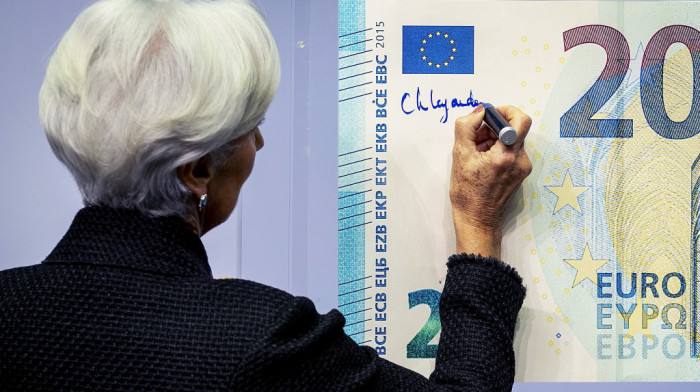 BCE ECB ЕЦБ EZB EKP EKT EKB BĊE EBC 2015
Ch Lagarde
20
EURO
ΕΥΡΩ
ЕВРО
2